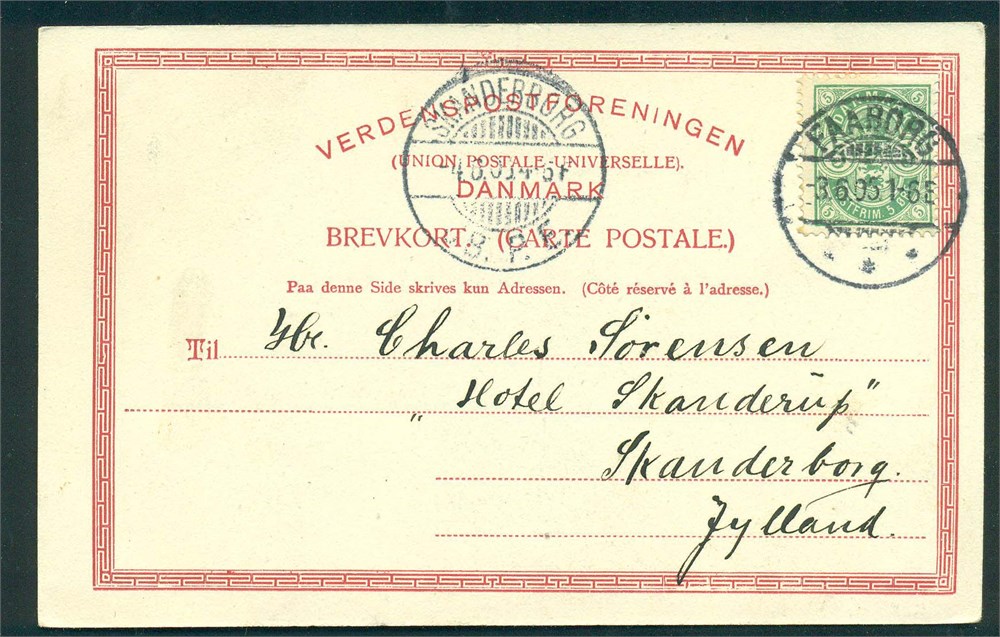 VERDENSPOSTFORENINGEN
(UNION POSTALE UNIVERSELLE).
DANMARK
BREVKORT. (CARTE POSTALE.)
Paa denne Side skrives kun Adressen. (Côté réservé à l'adresse.)
Til Hr. Charles Sørensen
„ Hotel Skanderup"
Skanderborg.
Jylland.
SKANDERBORG
B. P. E.
FAABORG
3.6.05 1-6E
FRIM. 5
5 5 5 5